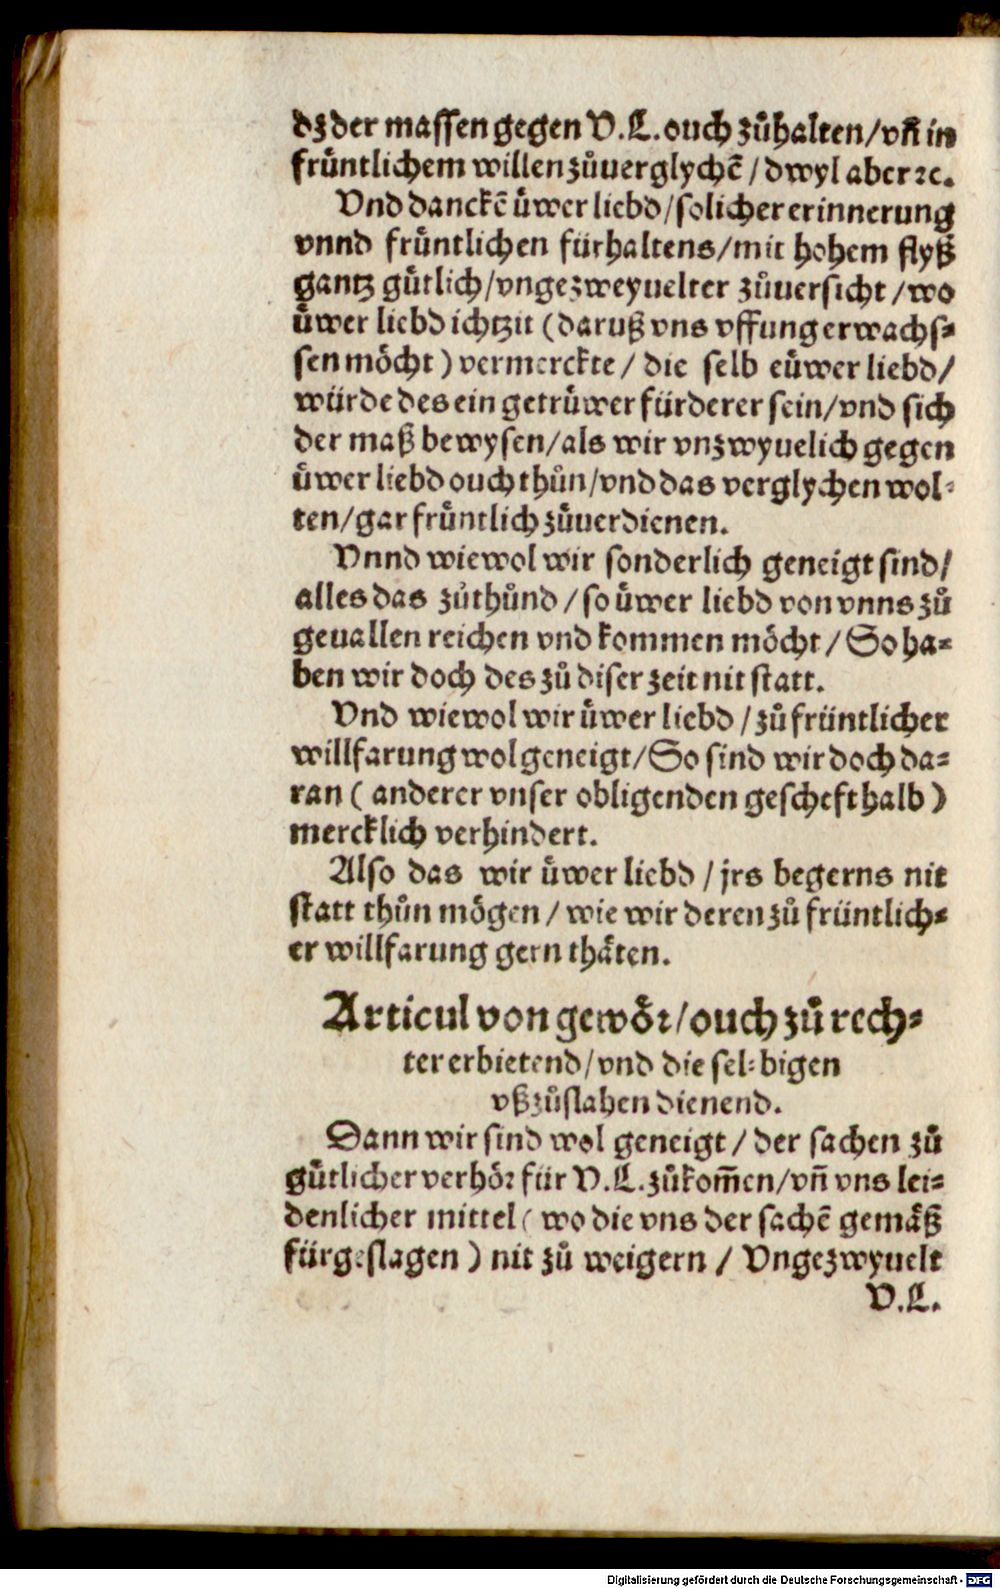 dz der massen gegen V.L. ouch zůhalten/vñ in
früntlichem willen zůuerglychē/dwyl aber ꝛc.
Vnd danckē üwer liebd/solicher erinnerung
vnnd früntlichen fürhaltens/mit hohem flyß
gantz gütlich/vngezweyuelter zůuersicht/wo
üwer liebd ichtzit (daruß vns vffung erwachs-
sen möcht) vermerckte/die selb eüwer liebd/
würde des ein getrüwer fürderer sein/vnd sich
der maß bewysen/als wir vnzwyuelich gegen
üwer liebd ouch thůn/vnd das verglychen wol-
ten/gar früntlich zůuerdienen.
Vnnd wiewol wir sonderlich geneigt sind/
alles das zůthůnd/so üwer liebd von vnns zů
geuallen reichen vnd kommen möcht/So ha-
ben wir doch des zů diser zeit nit statt.
Vnd wiewol wir üwer liebd/zů früntlicher
willfarung wol geneigt/So sind wir doch da-
ran (anderer vnser obligenden gescheft halb)
mercklich verhindert.
Also das wir üwer liebd/jrs begerns nit
statt thůn mögen/wie wir deren zů früntlich-
er willfarung gern thäten.
Articul von gewöꝛ/ouch zů rech-
ter erbietend/vnd die sel-bigen
vßzůslahen dienend.
Dann wir sind wol geneigt/der sachen zů
gütlicher verhöꝛ für V.L. zůkom̄en/vñ vns lei-
denlicher mittel (wo die vns der sachē gemäß
fürgeslagen) nit zů weigern/Vngezwyuelt
V.L.
Digitalisierung gefördert durch die Deutsche Forschungsgemeinschaft - DFG